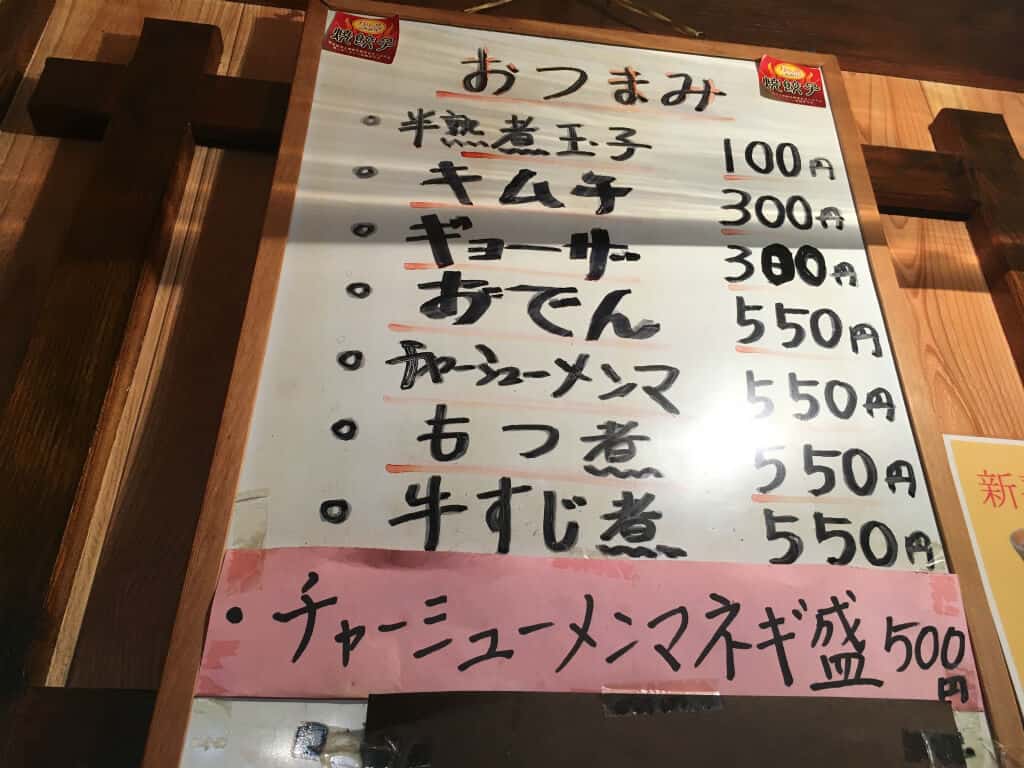 焼餃子
焼餃子
おつまみ
半熟煮玉子 100円
キムチ 300円
ギョーザ 300円
おでん 550円
チャーシューメンマ 550円
もつ煮 550円
牛すじ煮 550円
・チャーシューメンマネギ盛 500円
新